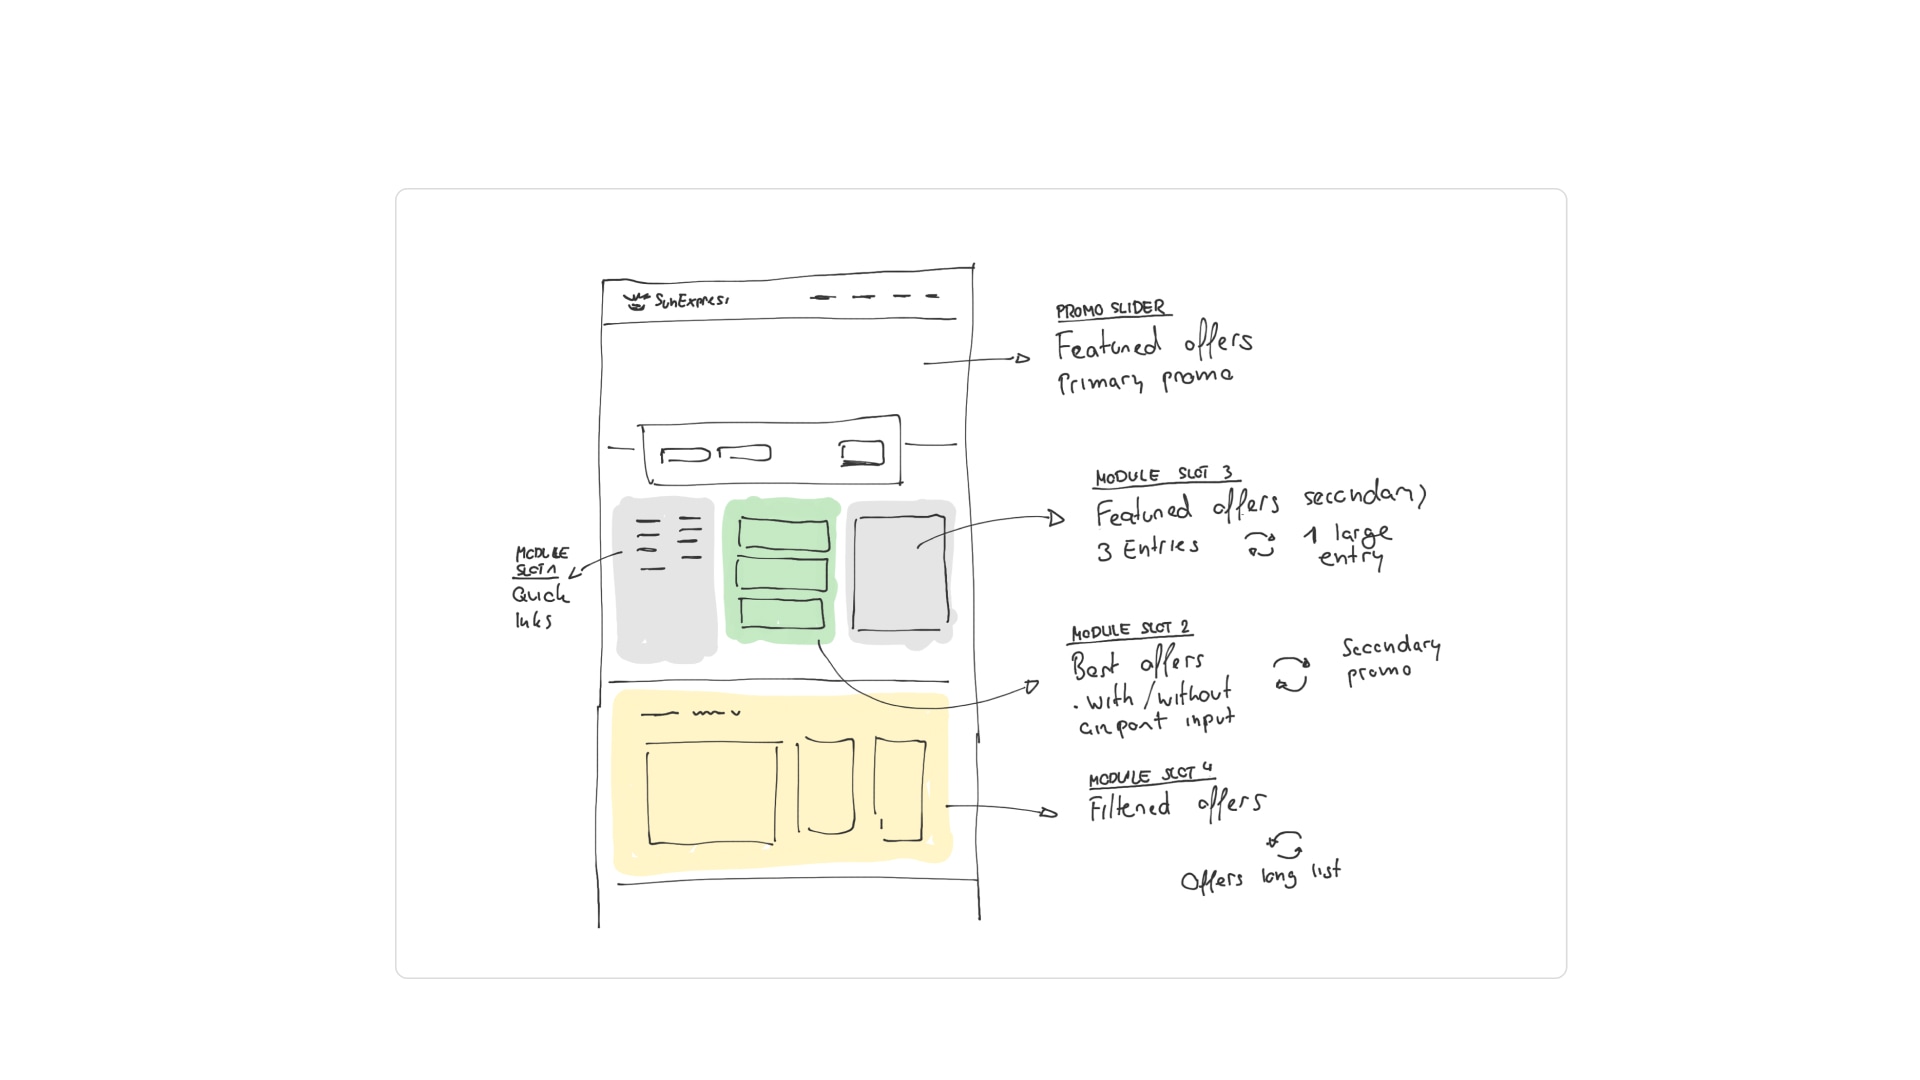 SunExpress
PROMO SLIDER
Featured offers
Primary promo
MODULE SLOT 3
Featured offers secondary
3 Entries 1 large
entry
MODULE
SLOT 1
Quick
links
MODULE SLOT 2
Best offers
. with / without
airport input
Secondary
promo
MODULE SLOT 4
Filtered offers
Offers long list